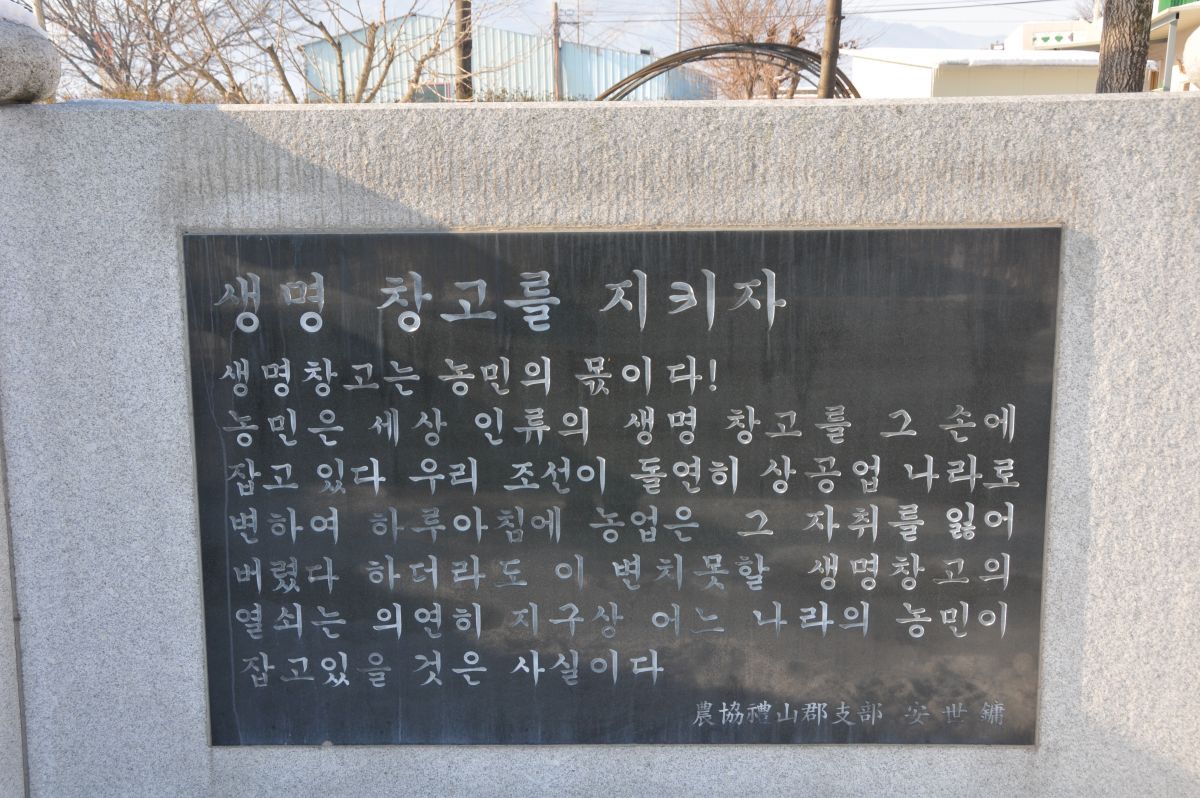 생명 창고를 지키자
생명창고는 농민의 몫이다!
농민은 세상 인류의 생명 창고를 그 손에
잡고 있다 우리 조선이 돌연히 상공업 나라로
변하여 하루아침에 농업은 그 자취를 잃어
버렸다 하더라도 이 변치못할 생명창고의
열쇠는 의연히 지구상 어느 나라의 농민이
잡고있을 것은 사실이다
農協禮山郡支部 安世鏞